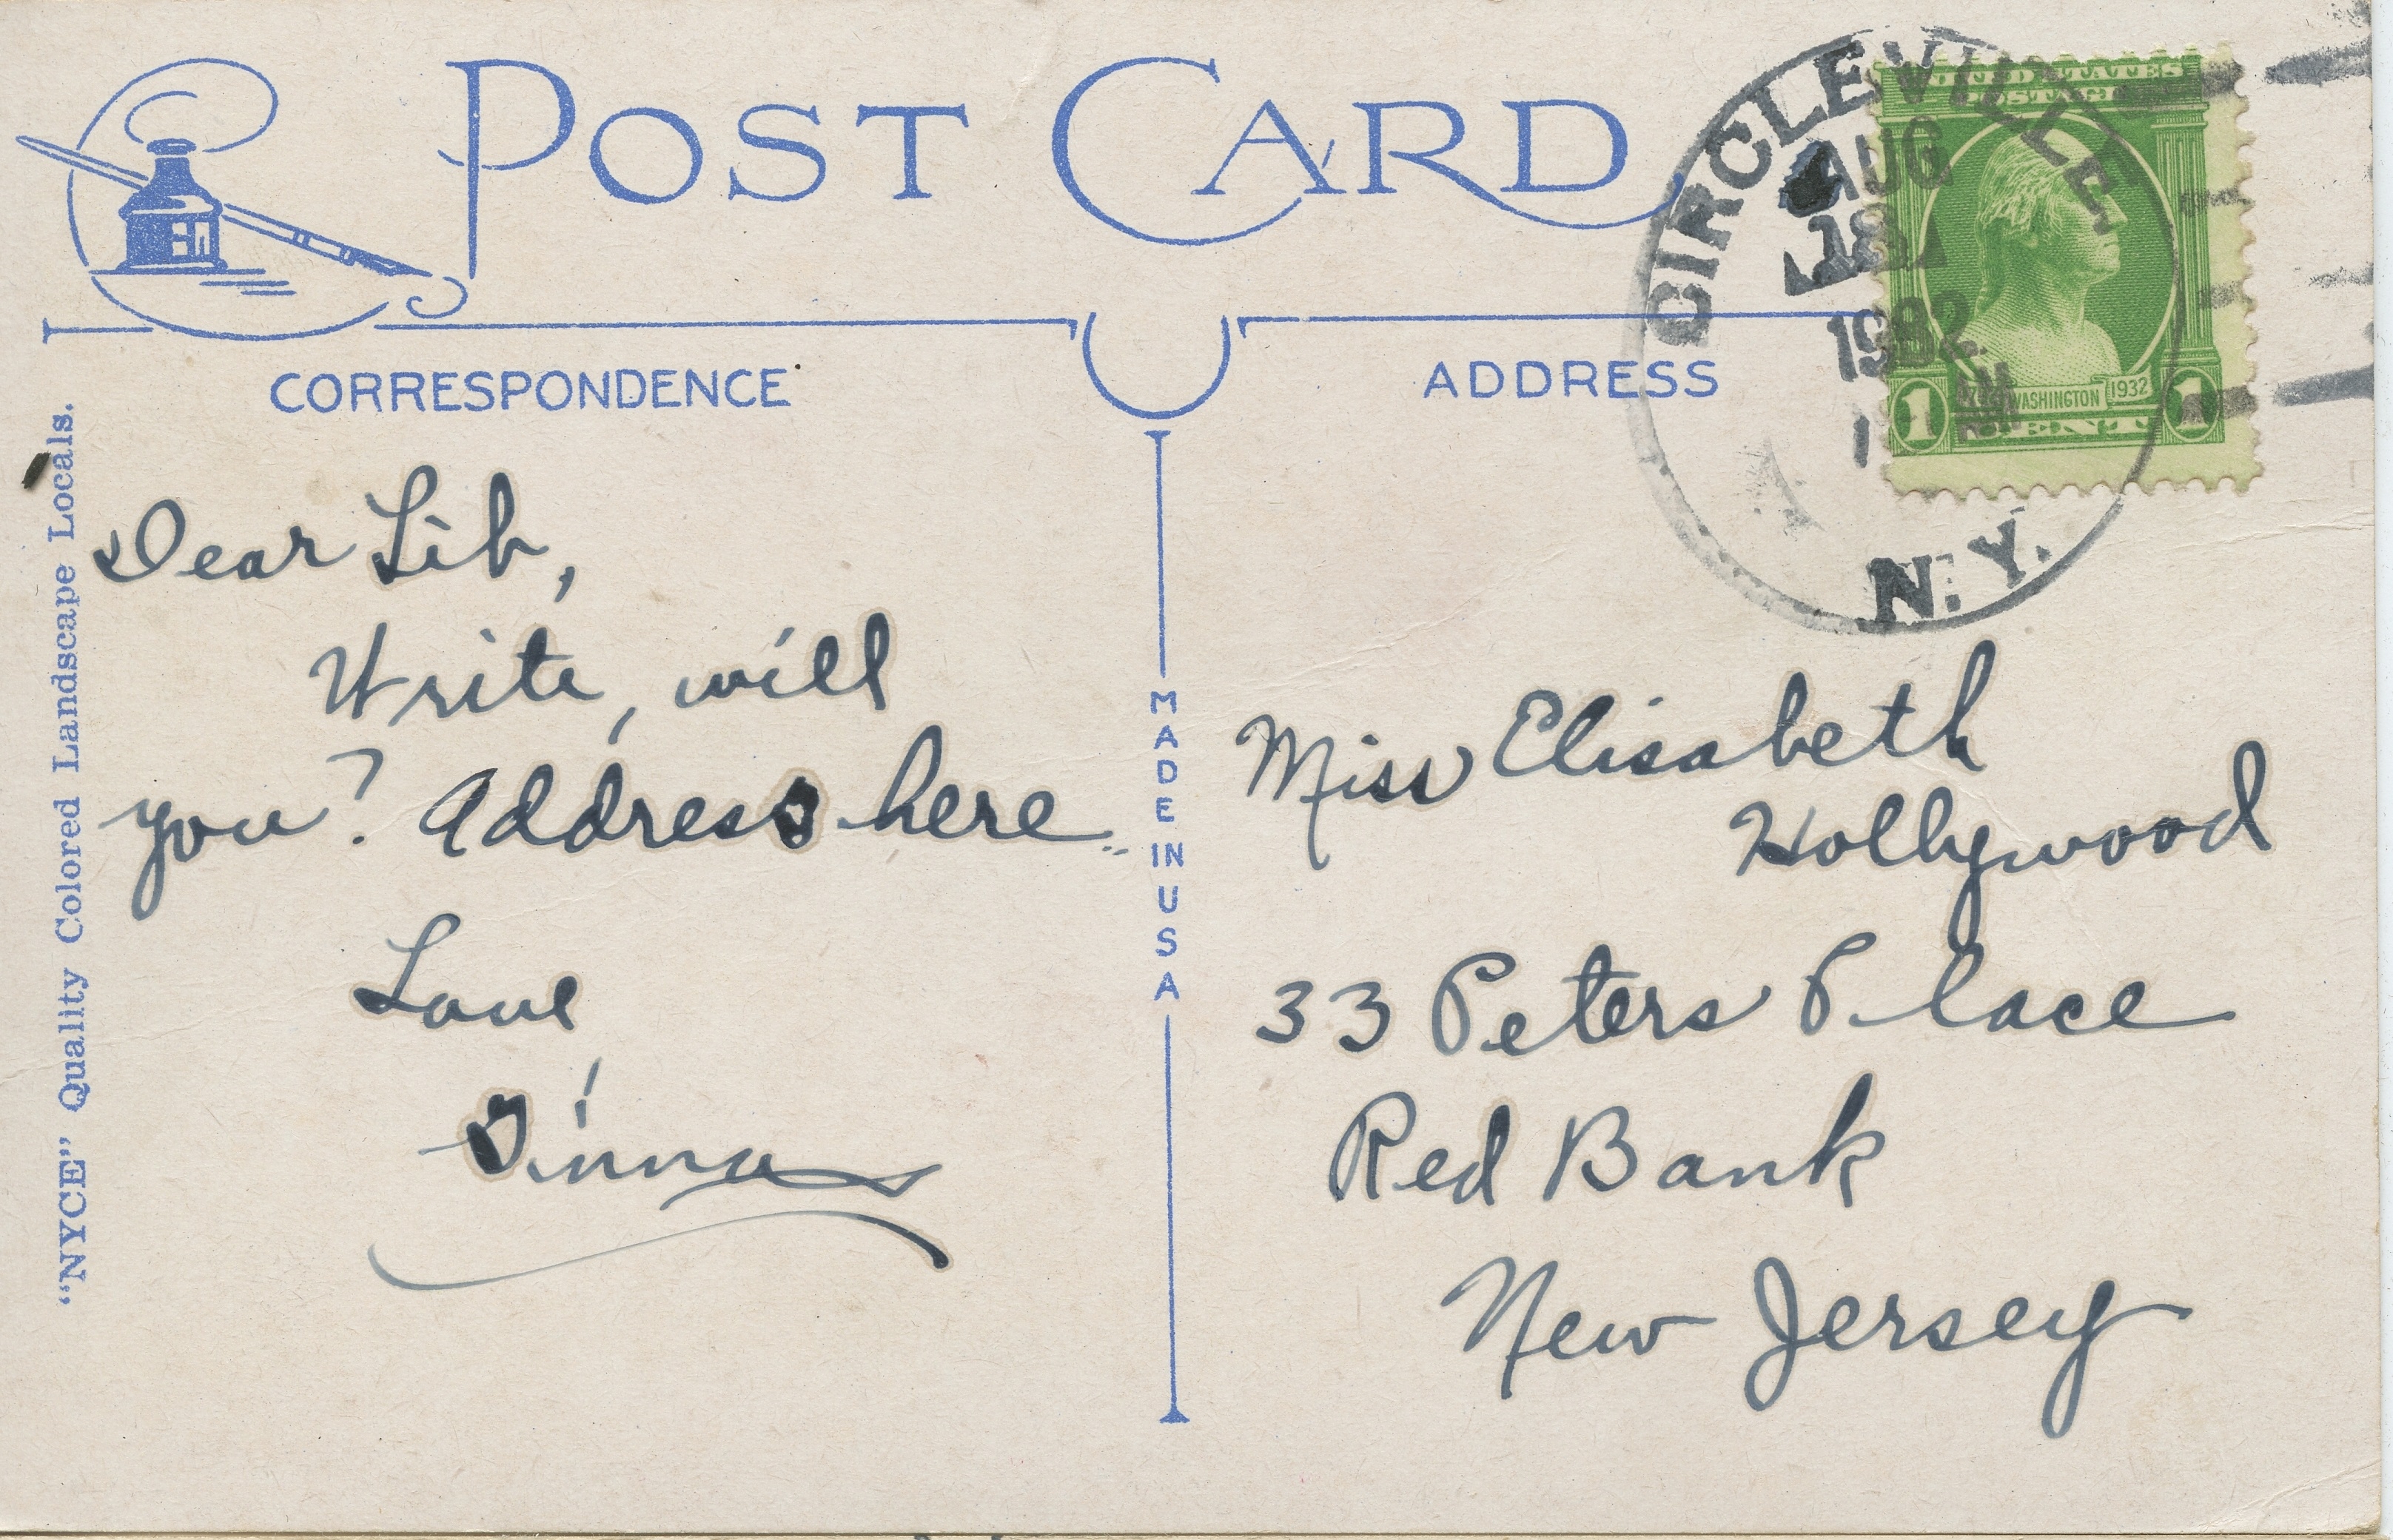 POST CARD
CIRCLEVILLE
AUG
18
1932
N.Y.
UNITED STATES
POSTAGE
WASHINGTON 1932
1 CENT 1
CORRESPONDENCE
ADDRESS
"NYCE" Quality Colored Landscape Locals.
MADE IN USA
Dear Lib,
Write, will
you? Address here.
Love,
Miss Elisabeth
Hollywood
33 Peters Place
Red Bank
New Jersey